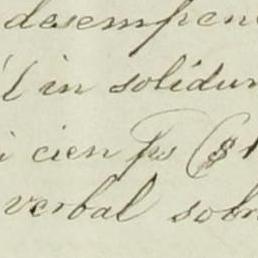 desempen
in solidum
cien ps ($1
verbal sobr